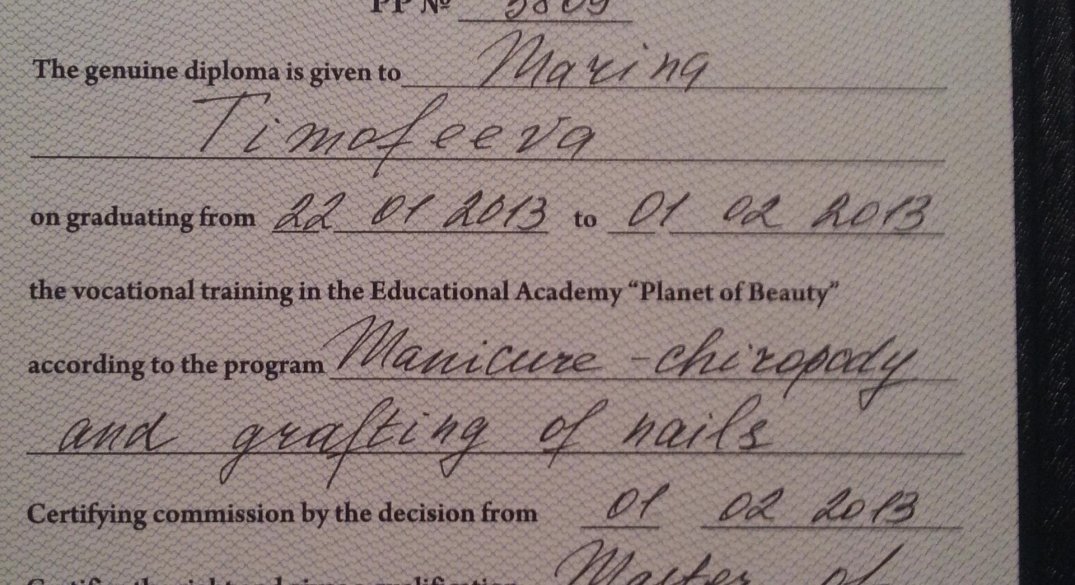 PP № 5809
The genuine diploma is given to Marina
Timofeeva
on graduating from 22 01 2013 to 01 02 2013
the vocational training in the Educational Academy “Planet of Beauty”
according to the program Manicure - chiropody
and grafting of nails
Certifying commission by the decision from 01 02 2013
Master of